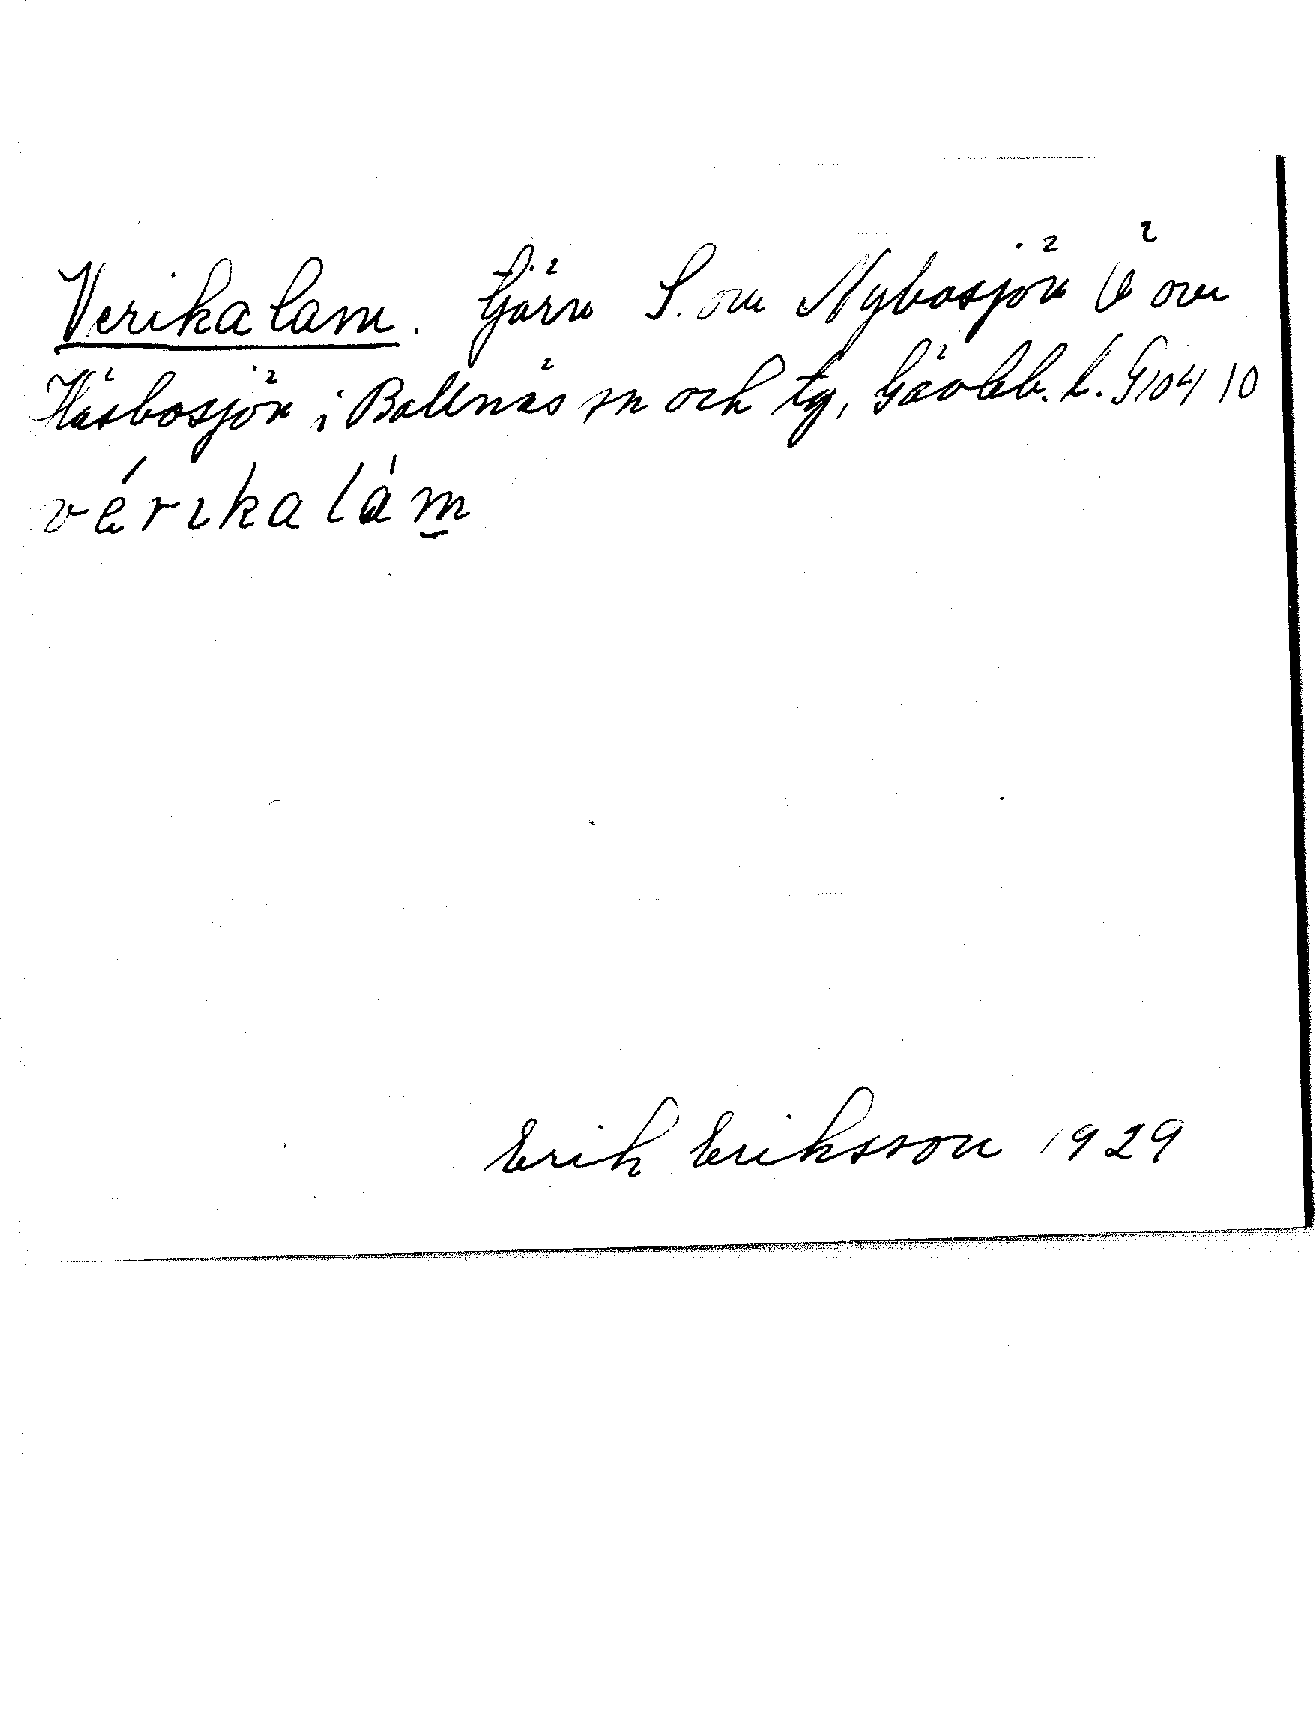 Verikalam. Tjärn S. om Nybosjön Ö om
Häsbosjön i Bollnäs sn och tg, Gävleb. l. G 104 10
vérikalám
Erik Eriksson 1929